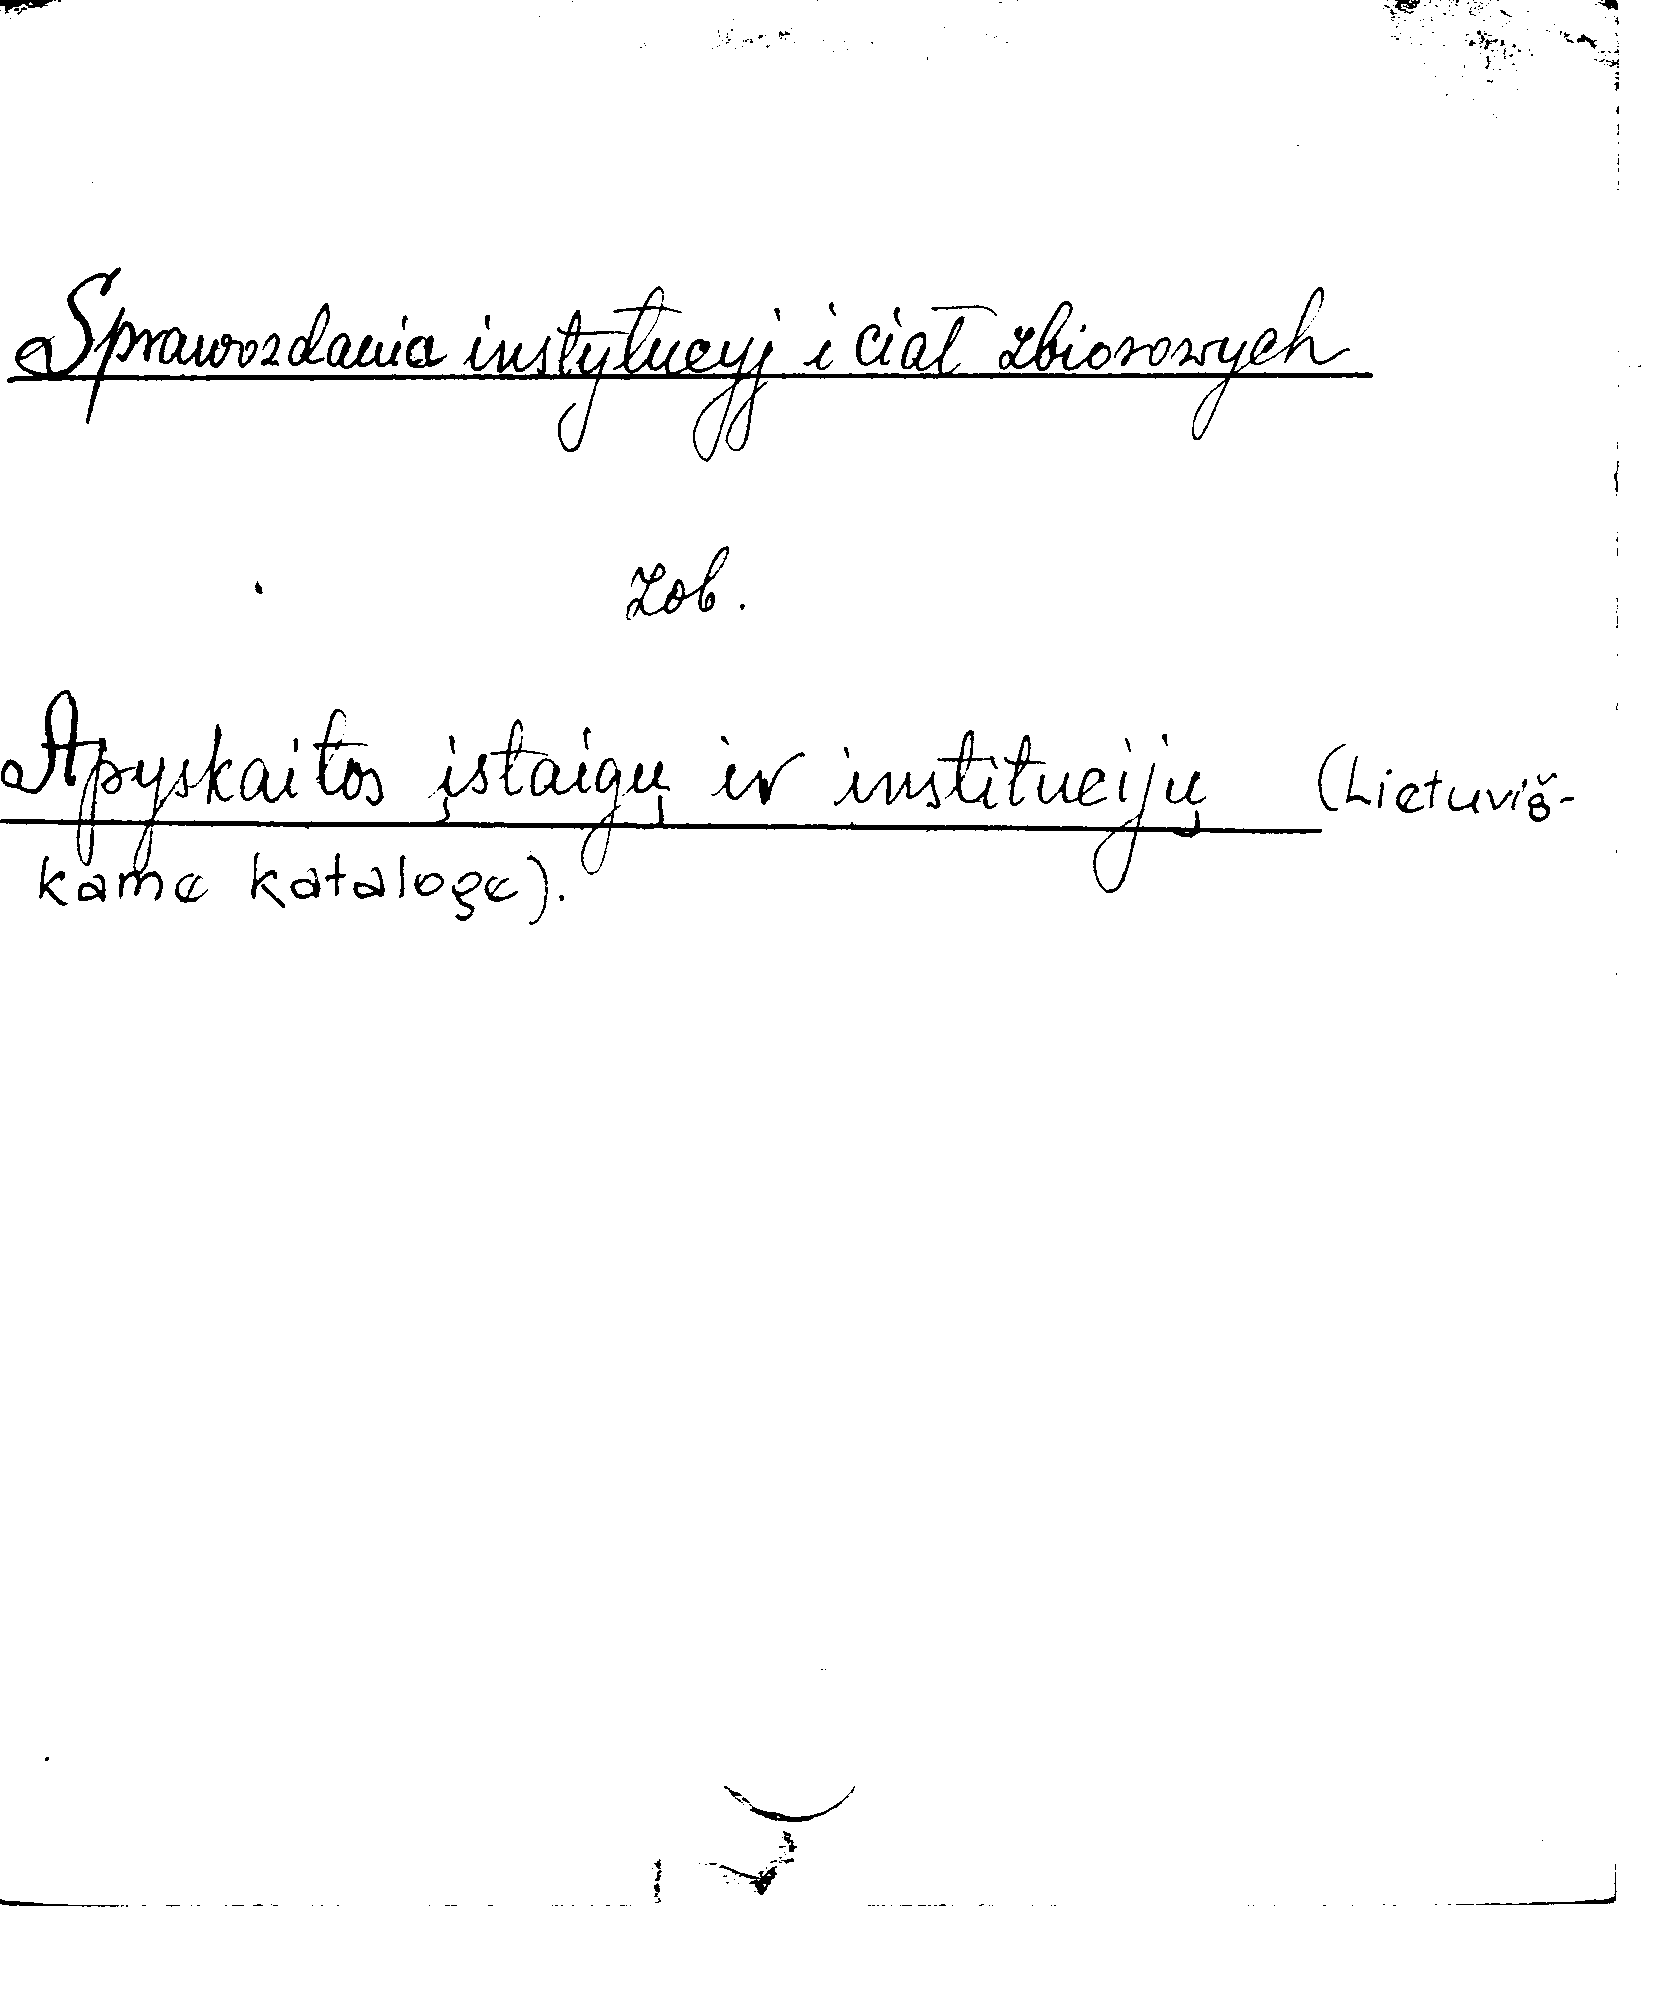 Sprawozdania instytucyj i ciał zbiorowych
Zob.
Apyskaitos įstaigų ir institucijų (Lietuviš-
kame kataloge).